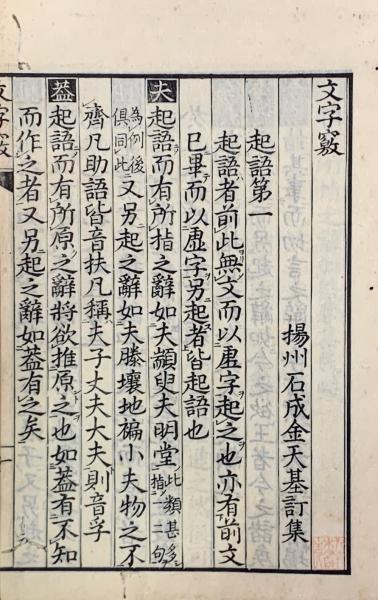 文字竅
揚州石成金天基訂集
起語第一
起語者前此無文而以虛字起之也亦有前文
已畢而以虛字另起者皆起語也
夫起語而有所指之辭如夫顓臾夫明堂此類甚多指一二句
為例後俱同此又另起之辭如夫滕壤地褊小夫物之不
齊凡助語皆音扶凡稱夫子丈夫大夫則音孚
蓋起語而有所原之辭將欲推原之也如蓋有不知
而作之者又另起之辭如蓋有之矣
文字竅